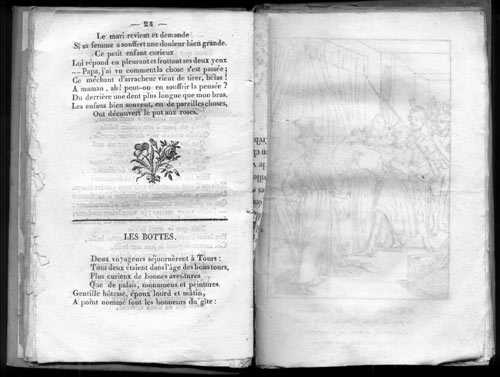 — 24 —
Le mari revient et demande
Si sa femme a souffert une douleur bien grande.
Ce petit enfant curieux
Lui répond en pleurant et frottant ses deux yeux
— Papa, j'ai vu comment la chose s'est passée;
Ce méchant d'arracheur vient de tirer, hélas!
A maman, ah! peut-on en souffrir la pensée?
Du derrière une dent plus longue que mon bras.
Les enfans bien souvent, en de pareilles choses,
Ont découvert le pot aux roses.
LES BOTTES.
Deux voyageurs séjournèrent à Tours:
Tous deux étaient dans l'âge des bons tours,
Plus curieux de bonnes aventures
Que de palais, monumens et peintures.
Gentille hôtesse, époux lourd et mâtin,
A point nommé font les honneurs du gîte: